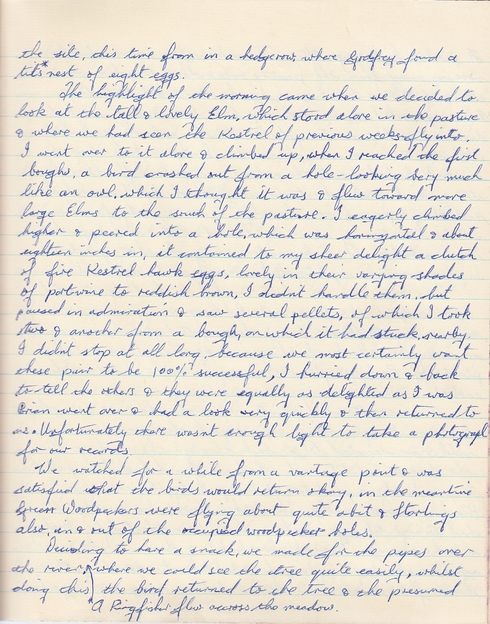 the site, this time from in a hedgerow where Godfrey found a
tits* nest of eight eggs.
The highlight of the morning came when we decided to
look at the tall & lovely Elm, which stood alone in the pasture
& where we had seen the Kestrel of previous weeks fly into.
I went over to it alone & climbed up, when I reached the first
boughs, a bird crashed out from a hole - looking very much
like an owl, which I thought it was & flew toward more
large Elms to the south of the pasture. I eagerly climbed
higher & peered into a hole, which was horizontal & about
eighteen inches in, it contained to my sheer delight a clutch
of five Kestrel hawk eggs, lovely in their varying shades
of portwine to reddish-brown, I didn't handle them, but
paused in admiration & saw several pellets, of which I took
two & another from a bough, on which it had stuck, nearby.
I didn't stop at all long, because we most certainly want
these pair to be 100% successful, I hurried down & back
to tell the others & they were equally as delighted as I was
Brian went over & had a look very quickly & then returned to
us. Unfortunately there wasn't enough light to take a photograph
for our records.
We watched for a while from a vantage point & was
satisfied that the birds would return okay, in the meantime
Green Woodpeckers were flying about quite abit & Starlings
also, in & out of the occupied woodpecker holes.
Deciding to have a snack, we made for the pipes over
the river, where we could see the tree quite easily, whilst
doing this the bird returned to the tree & the presumed
*A Kingfisher flew across the meadow.